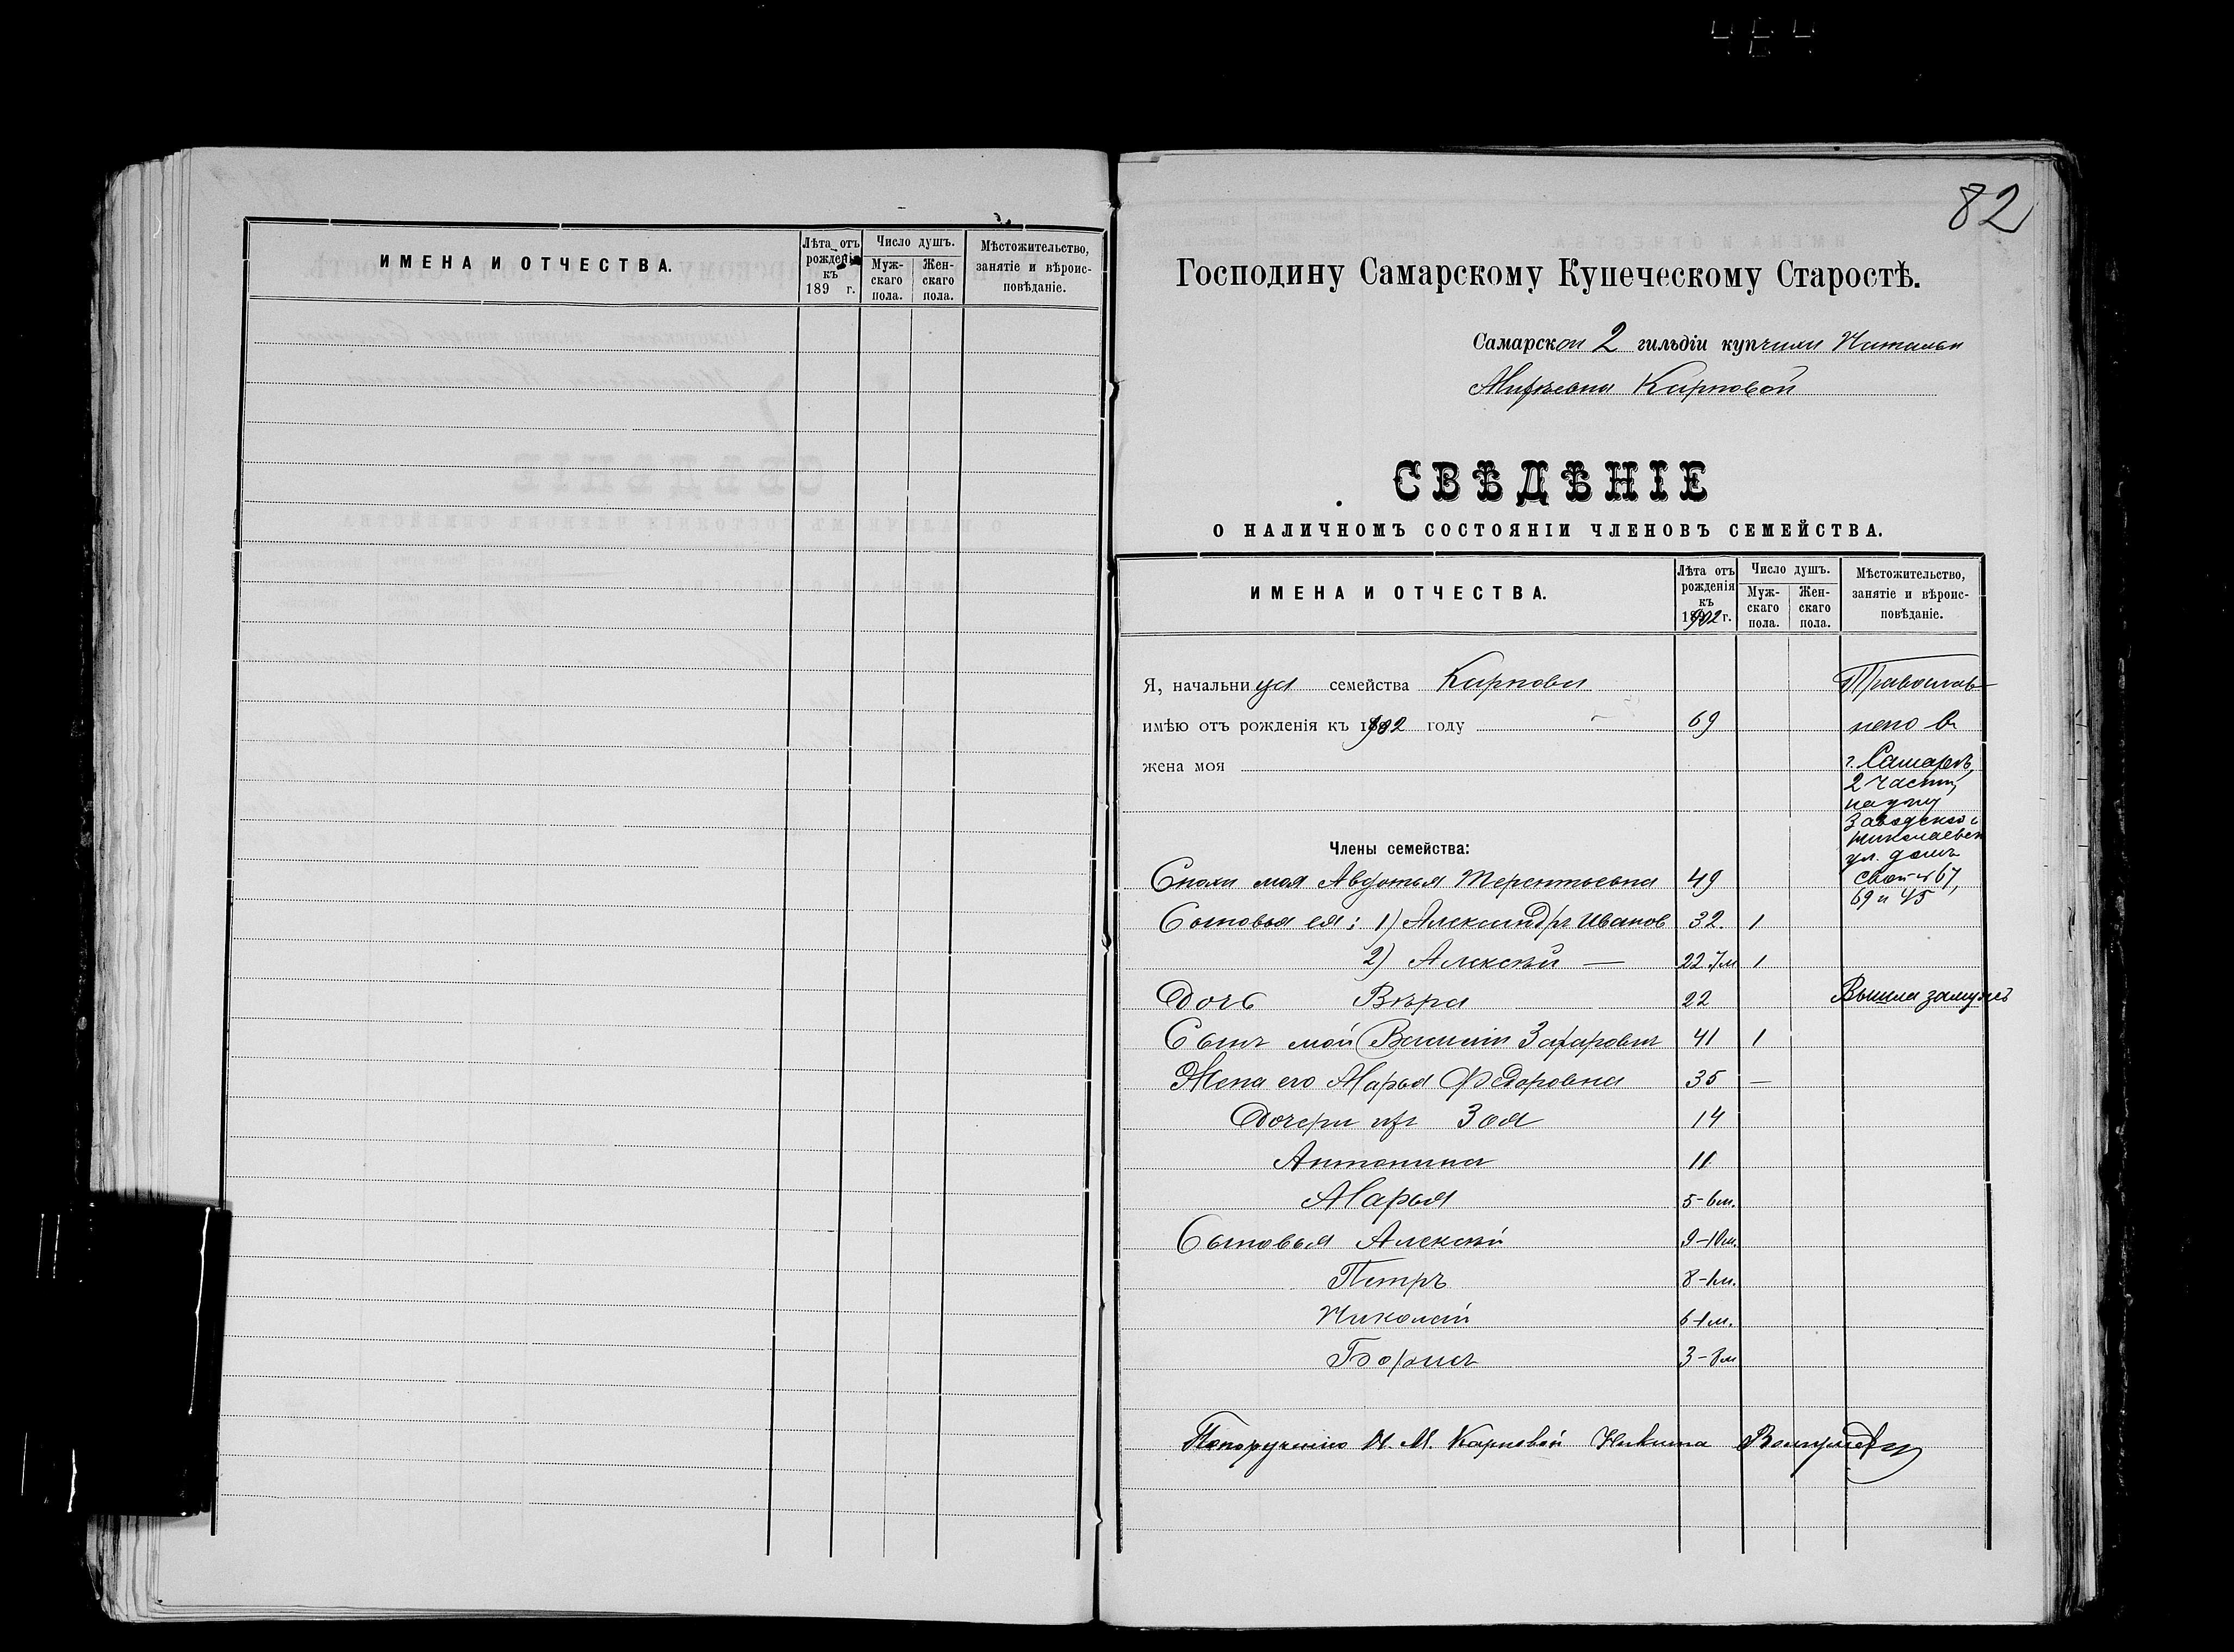 464
ИМЕНА И ОТЧЕСТВА.
Лѣта отъ рожденія къ 189 г.
Число душъ.
Муж-скаго пола.
Жен-скаго пола.
Мѣстожительство, занятіе и вѣроис-повѣданіе.
82
Господину Самарскому Купеческому Старостѣ.
Самарской 2 гильдіи купчихи Натальи
Карповой
СВѢДѢНІЕ
О НАЛИЧНОМЪ СОСТОЯНІИ ЧЛЕНОВЪ СЕМЕЙСТВА.
ИМЕНА И ОТЧЕСТВА.
Лѣта отъ рожденія къ 1902 г.
Число душъ.
Муж-скаго пола.
Жен-скаго пола.
Мѣстожительство, занятіе и вѣроис-повѣданіе.
Я, начальница семейства Карпова Православ
имѣю отъ рожденія къ 1902 году 69 наго въ
жена моя г. Самарѣ,
2 части,
на углу
Заводской и
Николаевск
Члены семейства: ул. домъ
Сноха моя Авдотья Терентьевна 49 свой № 67,
69 и 45
Сыновья ея: 1) Александръ Иванов 32. 1
2) Алексѣй — 22.7м 1
Дочь Вѣра 22 Вышла замужъ
Сынъ мой Василій Захаровичъ 41 1
Жена его Марья Федоровна 35 —
Дочери ихъ Зоя 14
Антонина 11
Марья 5-6м.
Сыновья Алексѣй 9-10м.
Петръ 8-1м.
Николай 6-1м.
Борисъ 3-8м
По порученію Н. М. Карповой Никита